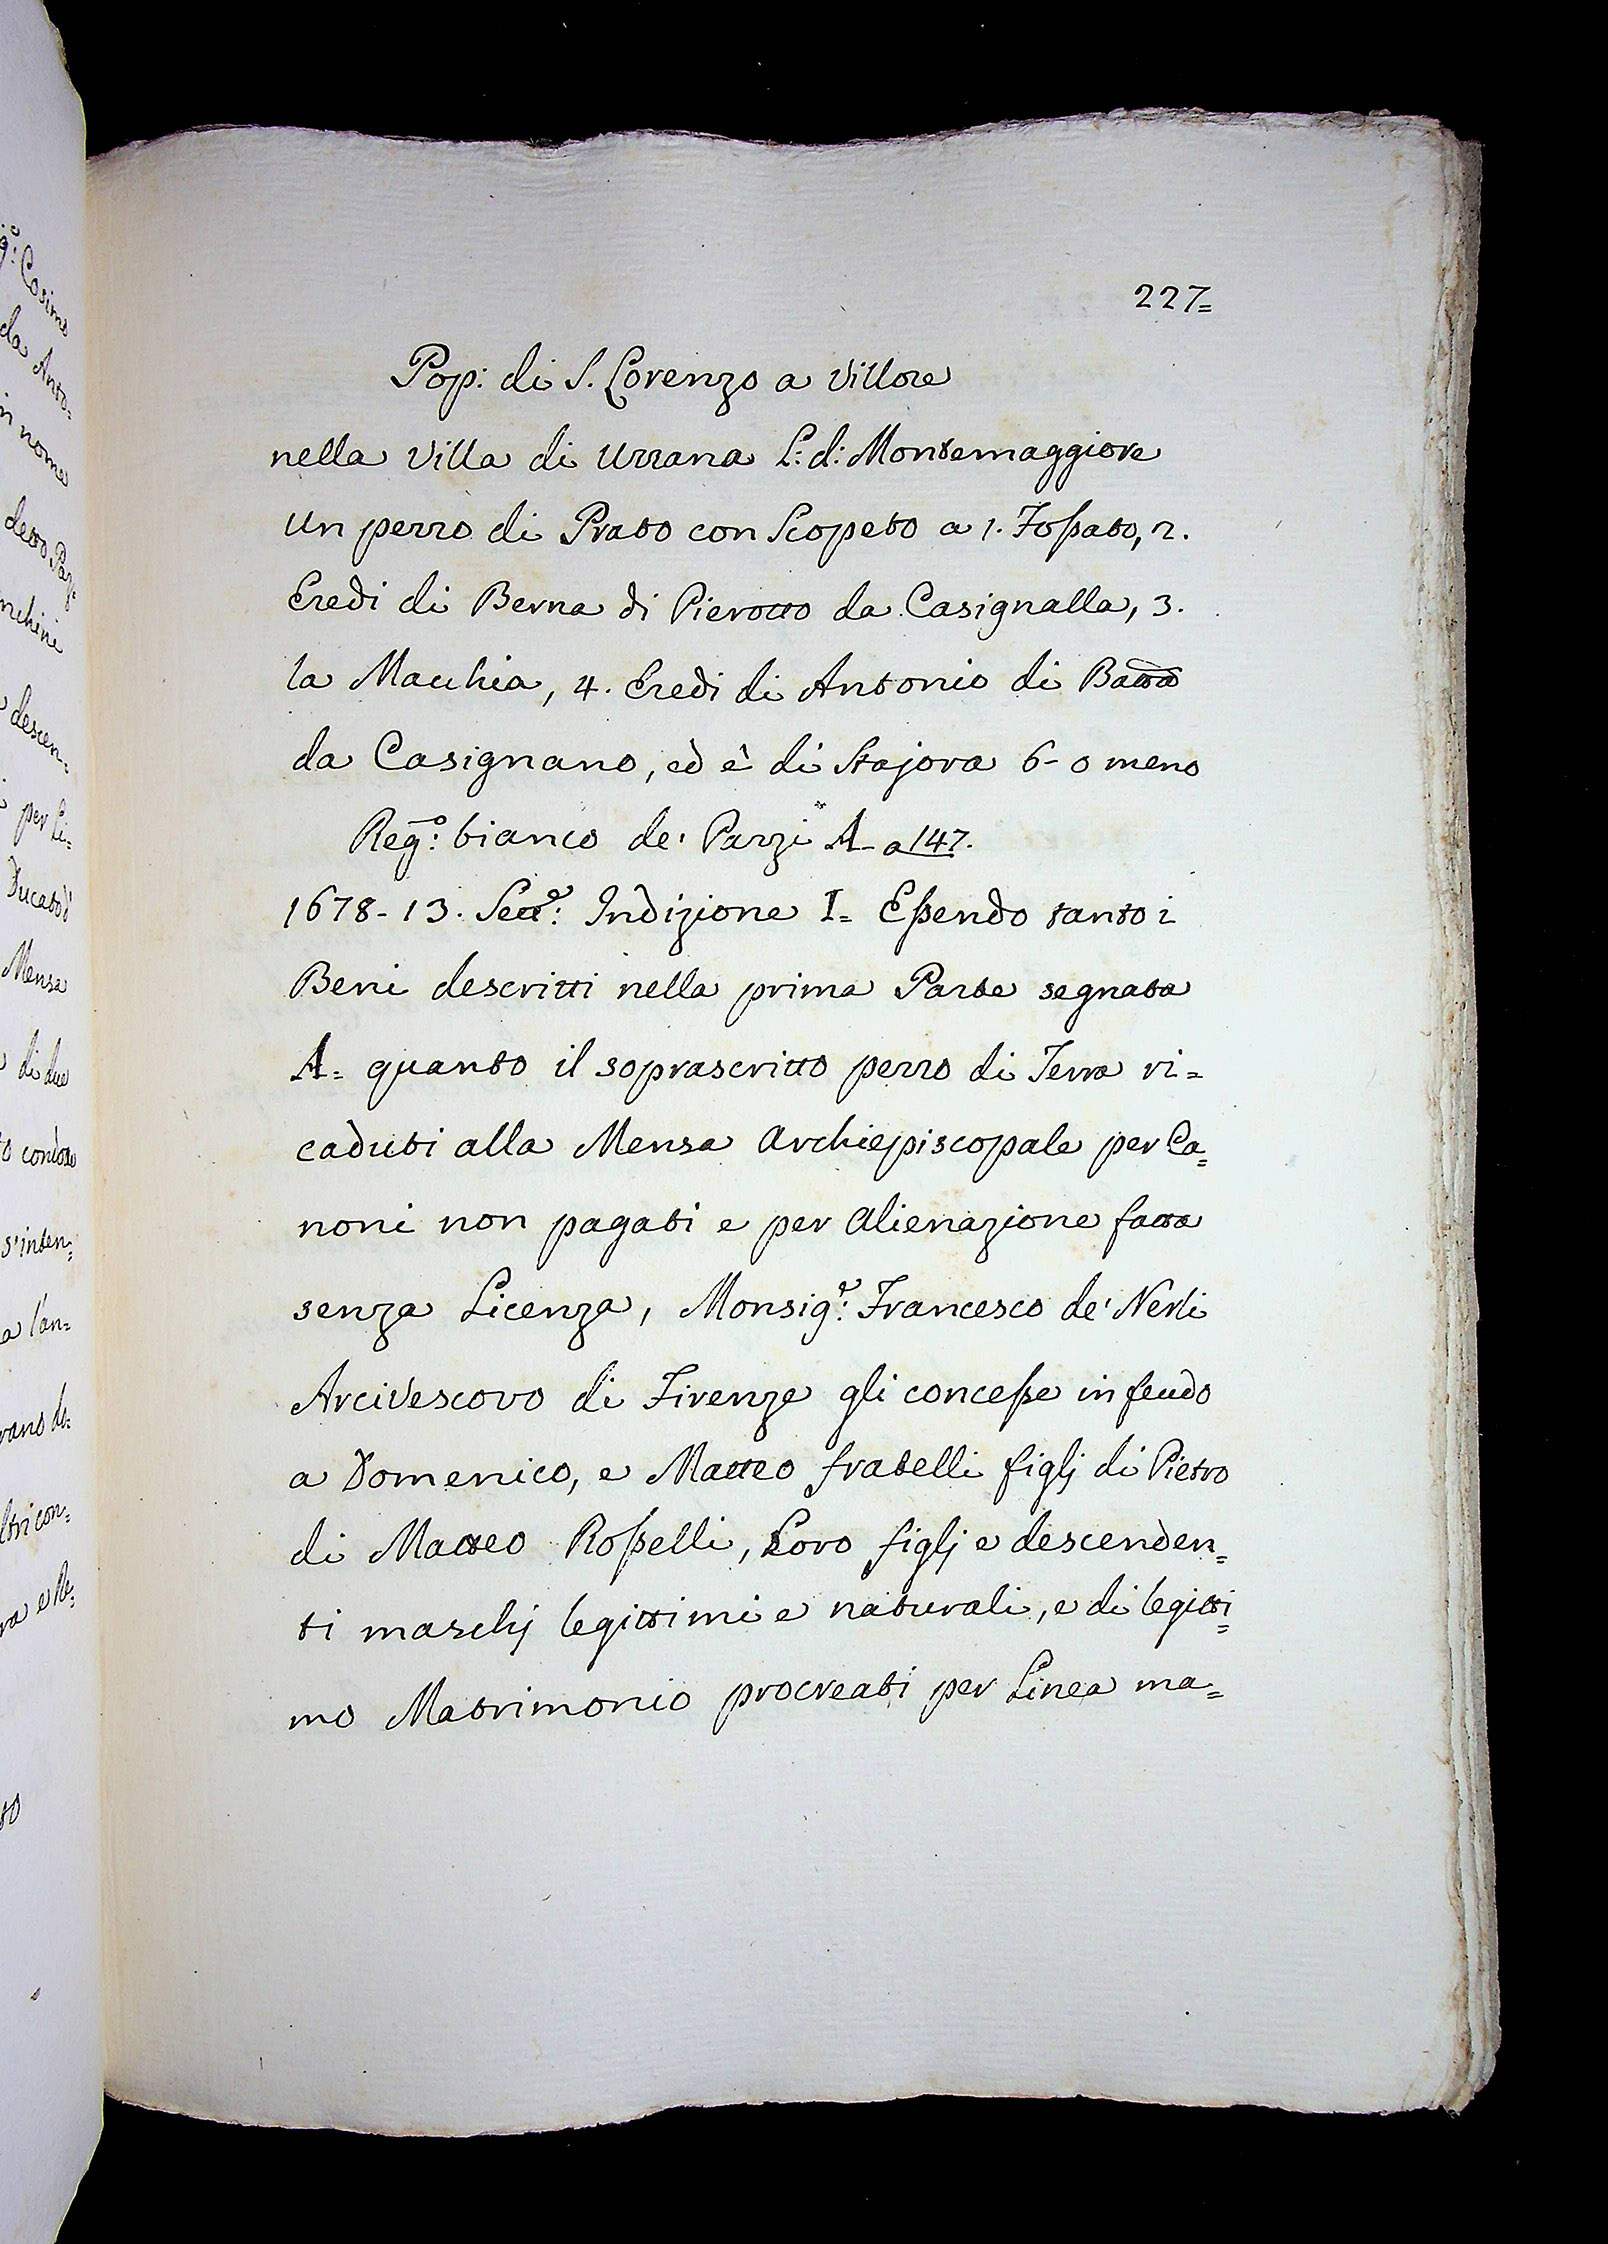 g.º Cosimo
da Anto-
in nome
detto Pag.
nchini
descen-
per Li-
Ducato d'
Mensa
di due
to condotto
s'inten-
a l'an-
vano do-
ltri con-
ra e Re-
to
227=
Pop: di S. Lorenzo a Villore
nella Villa di Uzzana L: d: Montemaggiore
un pezzo di Prato con Scopeto a 1. Fossato, 2.
Eredi di Berna di Pierotto da Casignalla, 3.
la Macchia, 4. Eredi di Antonio di Batta
da Casignano, ed è di Stajora 6- o meno
Reg.º: bianco de' Pazzi A- a 147.
1678- 13. Sett.e: Indizione I= Essendo tanto i
Beni descritti nella prima Parte segnata
A= quanto il soprascritto pezzo di Terra ri=
caduti alla Mensa Archiepiscopale per Ca=
noni non pagati e per Alienazione fatta
senza Licenza, Monsig.e: Francesco de' Nerli
Arcivescovo di Firenze gli concesse in feudo
a Domenico, e Matteo fratelli figlj di Pietro
di Matteo Rosselli, Loro figlj e descenden=
ti maschj legittimi e naturali, e di legitti=
mo Matrimonio procreati per Linea ma=